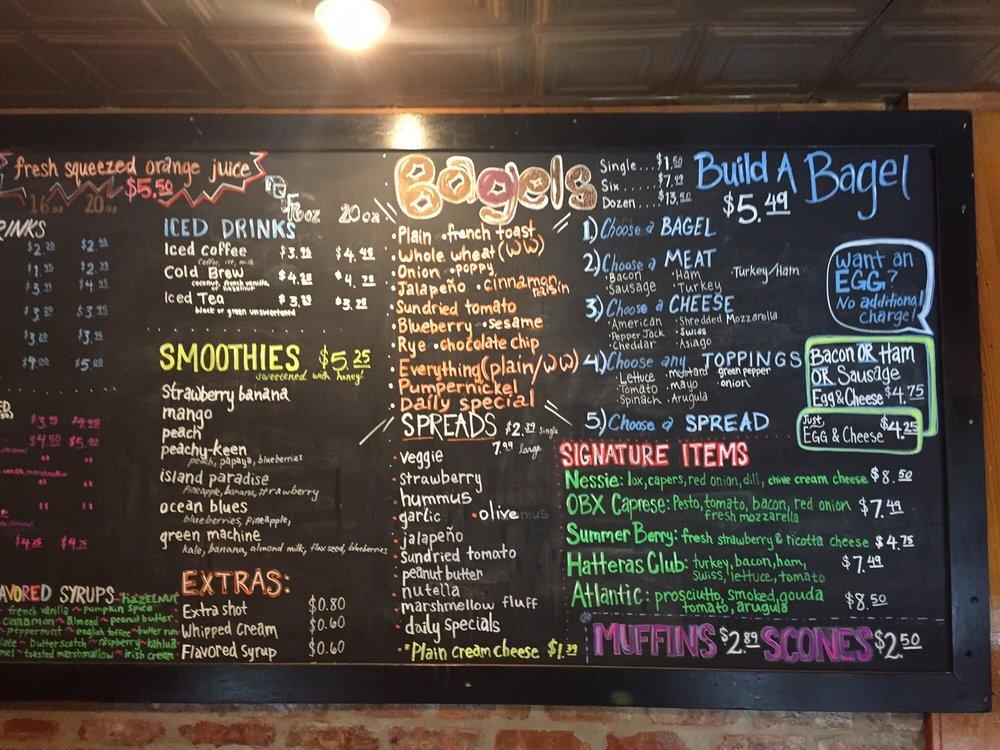 fresh squeezed orange juice
$5.50
16oz 20oz
$2.
$1.
$3.
$3.
$3.
$4.00 $5.00
$4.50
16oz 20oz
ICED DRINKS
Iced Coffee
Cold Brew
coconut, french vanilla,
Iced Tea
black or green unsweetened
SMOOTHIES $5.25
sweetened with honey
Strawberry banana
mango
peach
peachy-keen
peach, papaya, blueberries
island paradise
Pineapple, banana, strawberry
ocean blues
blueberries, pineapple,
green machine
kale, banana, almond milk, flax seed, blueberries
FLAVORED SYRUPS HAZELNUT
french vanilla ~ pumpkin spice
cinnamon ~ almond ~ peanut butter
peppermint ~ english toffee ~ butter rum
butterscotch ~ raspberry ~ kahlua
toasted marshmallow ~ irish cream
EXTRAS:
Extra shot $0.80
Whipped Cream $0.60
Flavored Syrup $0.60
Bagels
Single....$1.50
Six......
Dozen....$13.50
• Plain • french toast
• Whole wheat (WW)
• Onion • poppy
• Jalapeño • cinnamon raisin
• Sundried tomato
• Blueberry • sesame
• Rye • chocolate chip
• Everything (plain/WW)
• Pumpernickel
• Daily special
SPREADS $2.39 Single
7.99 Large
• veggie
• strawberry
• hummus
• garlic • olive
• jalapeño
• Sundried tomato
• peanut butter
• nutella
• marshmallow fluff
• daily specials
*Plain cream cheese $1.39
Build A Bagel
$5.49
1) Choose a BAGEL
2) Choose a MEAT
• Bacon • Ham • Turkey/Ham
• Sausage • Turkey
3) Choose a CHEESE
• American • Shredded Mozzarella
• Pepper Jack • Swiss
• Cheddar • Asiago
4) Choose any TOPPINGS
• Lettuce • mustard • green pepper
• Tomato • mayo • onion
• Spinach • Arugula
5) Choose a SPREAD
Want an
EGG?
No additional
charge!
Bacon OR Ham
OR Sausage
Egg & Cheese $4.75
Just
EGG & Cheese $4.25
SIGNATURE ITEMS
Nessie: lox, capers, red onion, dill, chive cream cheese $8.50
OBX Caprese: Pesto, tomato, bacon, red onion $7.49
fresh mozzarella
Summer Berry: fresh strawberry & ricotta cheese $4.75
Hatteras Club: turkey, bacon, ham, $7.49
Swiss, lettuce, tomato
Atlantic: prosciutto, smoked gouda $8.50
tomato, arugula
MUFFINS $2.89 SCONES $2.50